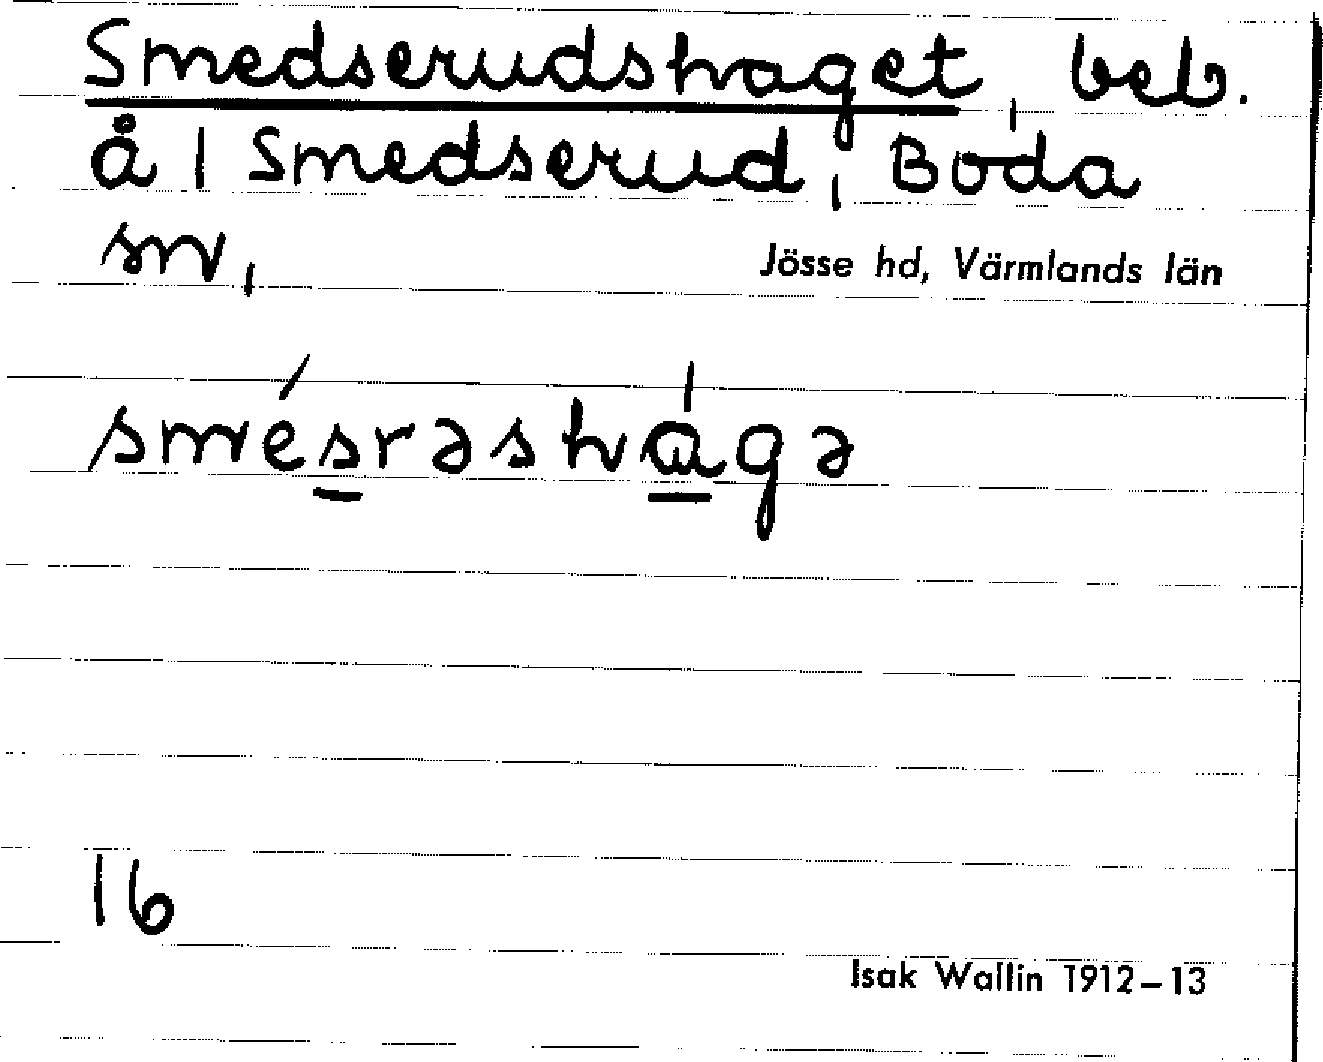 Smedserudshaget, beb.
å 1 Smedserud, Boda
sn,
Jösse hd, Värmlands län
smésrəshágə
16
Isak Wallin 1912–13